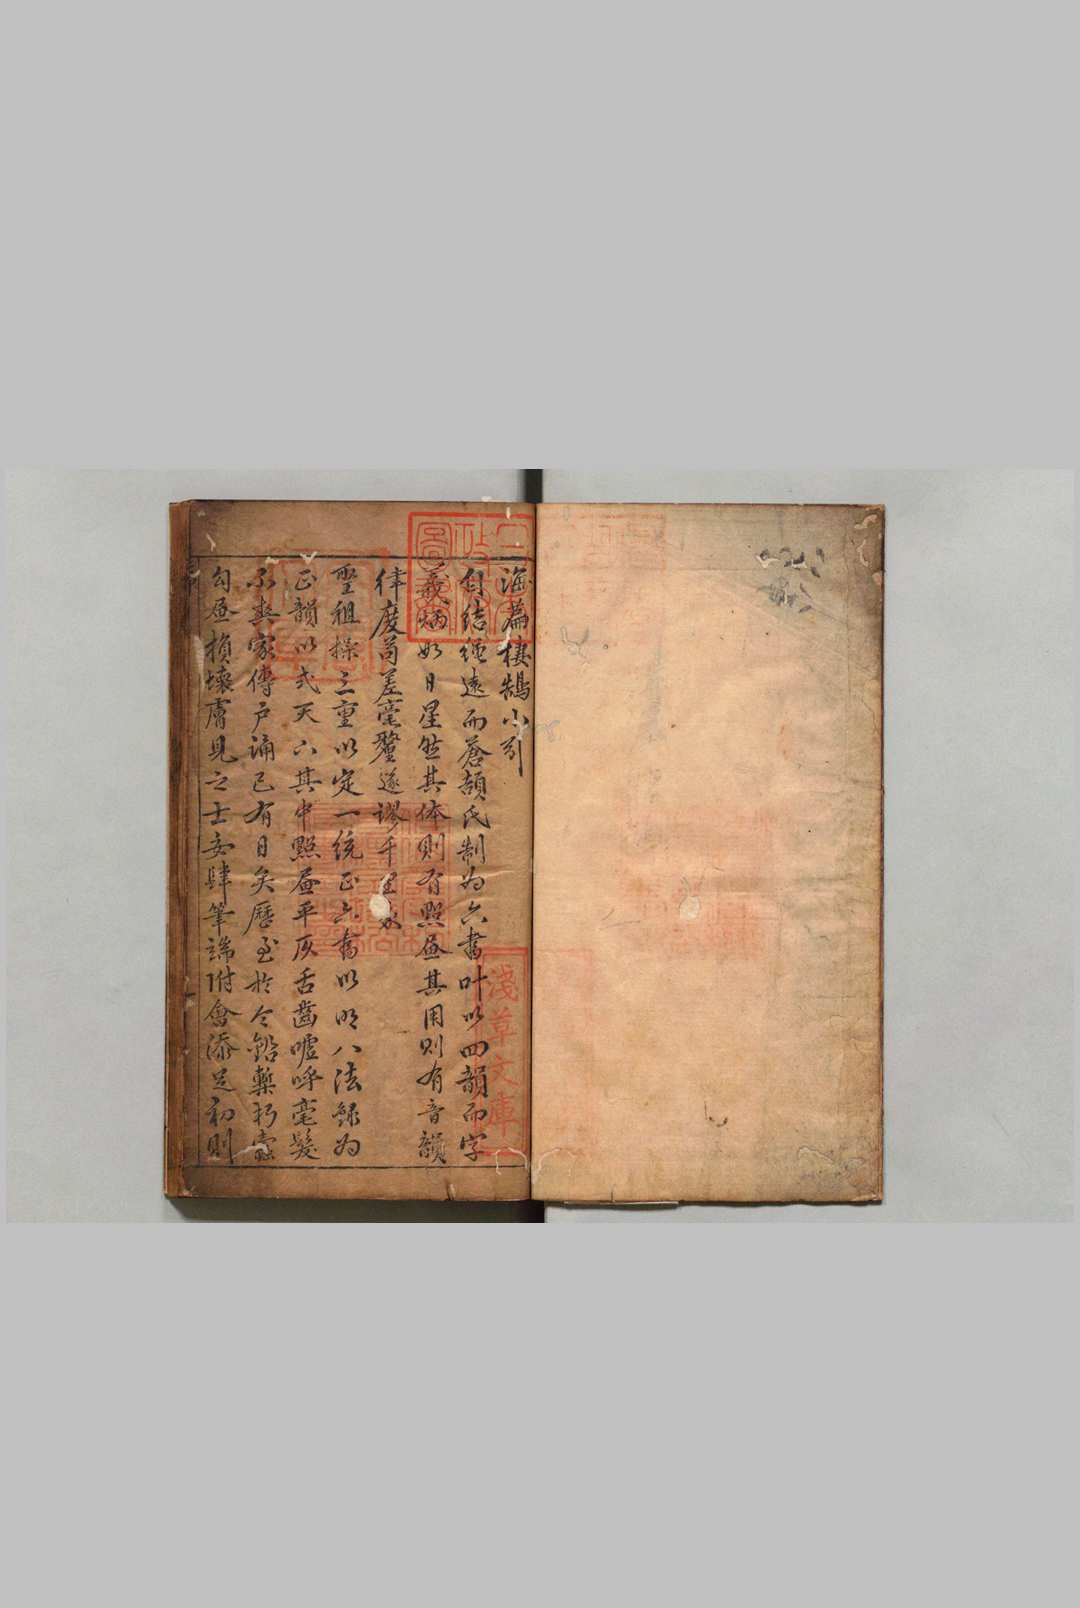 海篇棲鵠小引
自结繩遠而蒼頡氏制为六書叶以四韻而字
義炳如日星然其体則有點畫其用則有音韻
律度苟差毫釐遂謬千里我
聖祖操三重以定一統正六書以明八法錄为
正韻以式天下其中點畫平仄舌齒嘘呼毫髮
不爽家傳户誦已有日矣歷至於今鉛槧朽蠹
勾畫損壞膚見之士妄肆筆端附會添足初則
淺草文庫